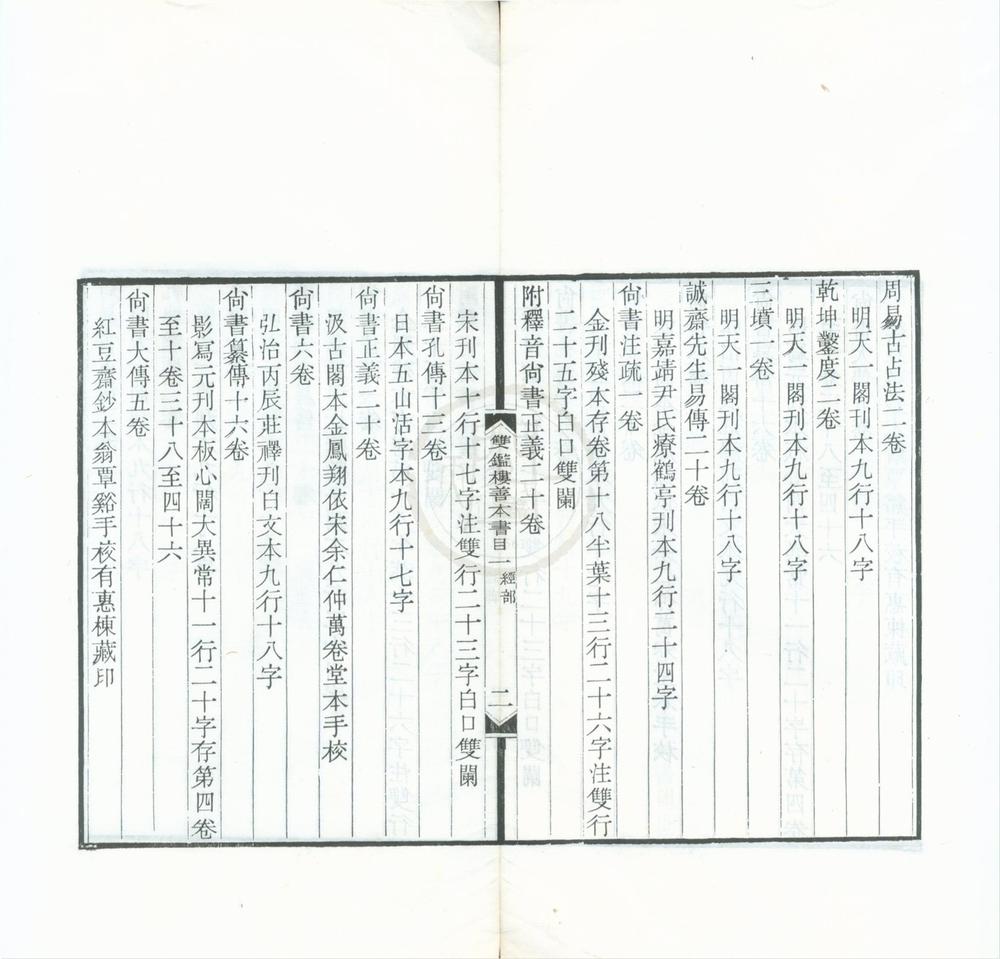 周易古占法二卷
明天一閣刊本九行十八字
乾坤鑿度二卷
明天一閣刊本九行十八字
三墳一卷
明天一閣刊本九行十八字
誠齋先生易傳二十卷
明嘉靖尹氏療鶴亭刊本九行二十四字
尙書注疏一卷
金刊殘本存卷第十八半葉十三行二十六字注雙行
二十五字白口雙闌
附釋音尙書正義二十卷
雙鑑樓善本書目一 經部
二
宋刊本十行十七字注雙行二十三字白口雙闌
尙書孔傳十三卷
日本五山活字本九行十七字
尙書正義二十卷
汲古閣本金鳳翔依宋余仁仲萬卷堂本手校
尙書六卷
弘治丙辰莊禪刊白文本九行十八字
尙書纂傳十六卷
影寫元刊本板心闊大異常十一行二十字存第四卷
至十卷三十八至四十六
尙書大傳五卷
紅豆齋鈔本翁覃谿手校有惠棟藏印